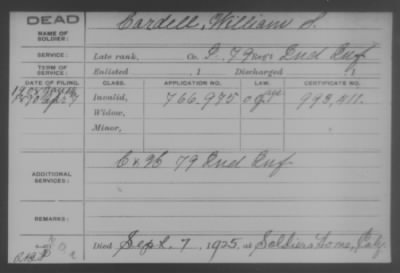 DEAD
NAME OF SOLDIER: Cardell, William S.
SERVICE: Late rank, Co. I. 79 Reg't Ind Inf
TERM OF SERVICE: Enlisted , 1 Discharged , 1
DATE OF FILING. CLASS. APPLICATION NO. LAW. CERTIFICATE NO.
Invalid, 766,975 age 993,511.
Widow,
Minor,
ADDITIONAL SERVICES: 79 Ind Inf
REMARKS:
Died Sept. 7, 1925, at Soldiers Home, Calif.